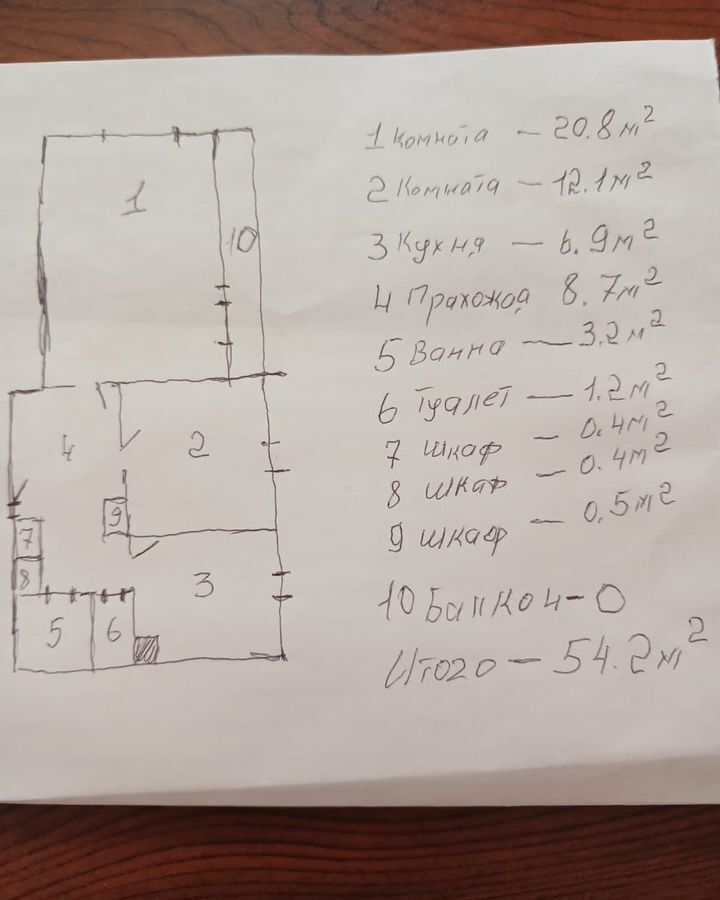 1 Комната — 20.8 м²
2 Комната — 12.1 м²
3 Кухня — 6.9 м²
4 Прахожая 8.7 м²
5 Ванна — 3.2 м²
6 Туалет — 1.2 м²
7 шкаф — 0.4 м²
8 шкаф — 0.4 м²
9 шкаф — 0.5 м²
10 Балкон - 0
Итого — 54.2 м²
1
10
4
2
9
7
8
3
5
6